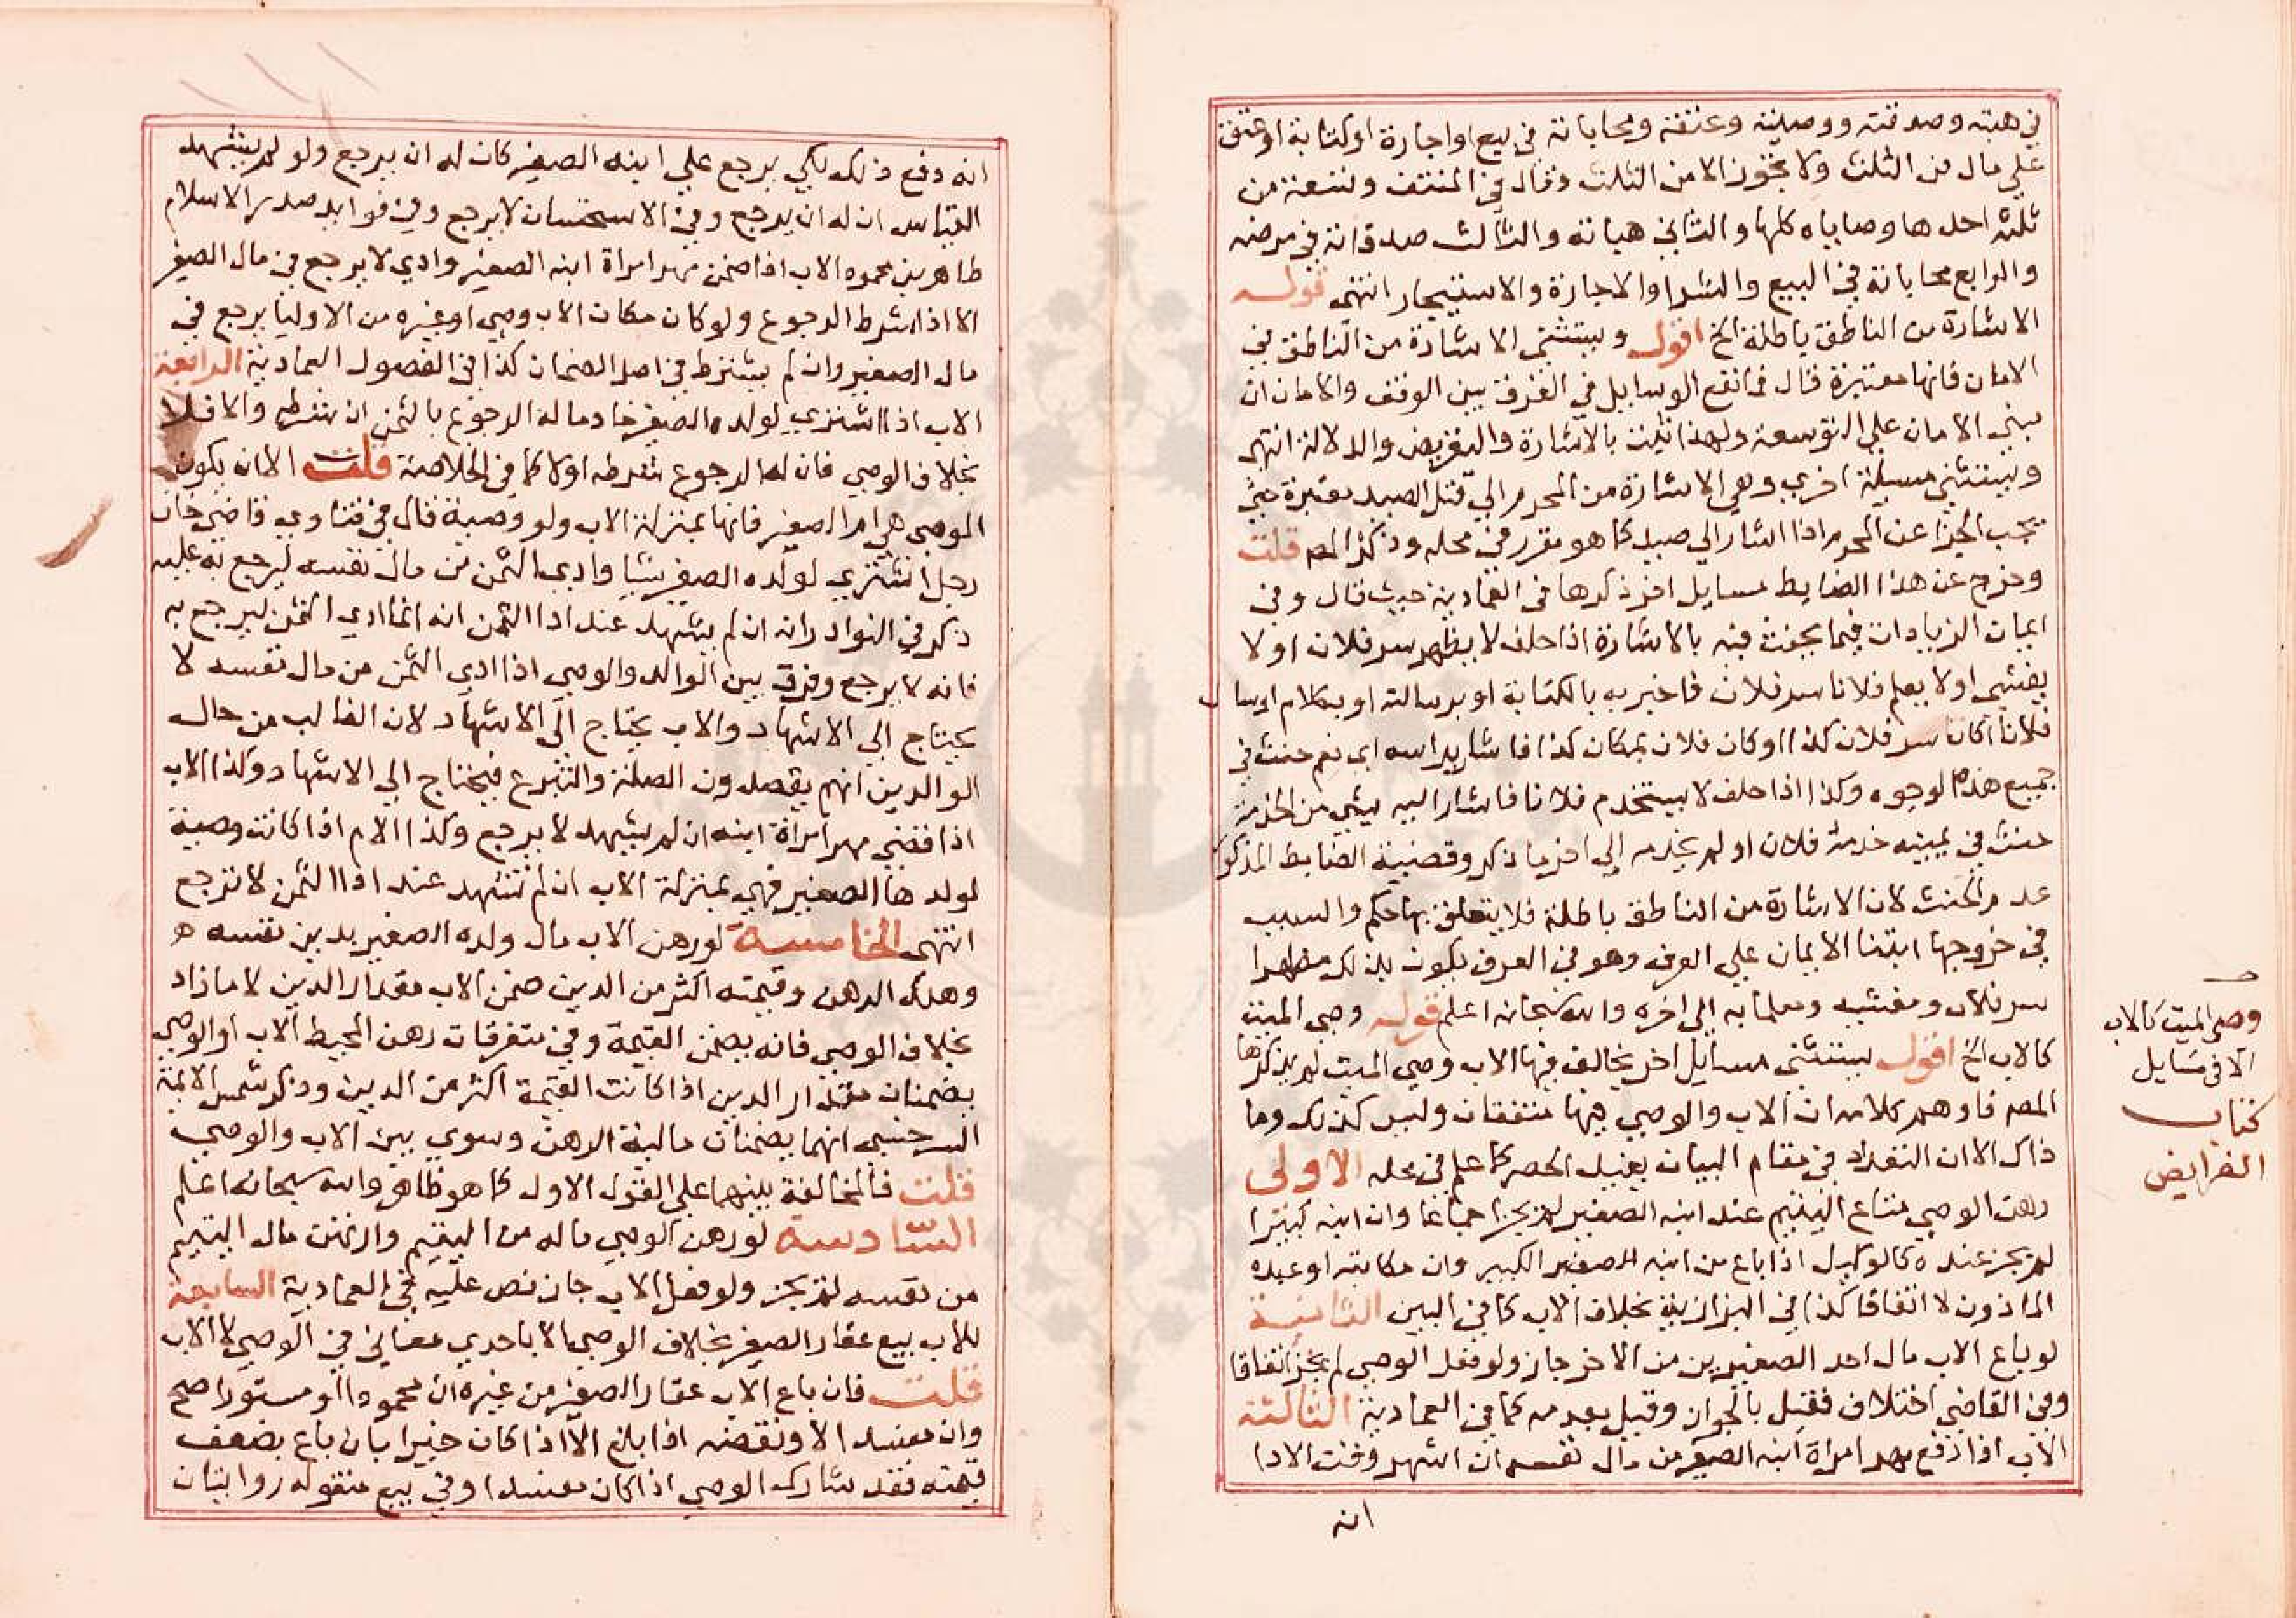 في هبته وصدقته ووصيته وعتقه ومحاباته في بيع او اجارة او كتابة او عتق
علي مال من الثلث ولا يجوز الا من الثلث وقال في المنتقى وتسعة من
ثلثه احدها وصاياه كلها والثاني هباته والثالث صدقاته في مرضه
والرابع محاباته في البيع والشرا والاجارة والاستيجار انتهى قوله
الاشارة من الناطق باطلة الخ اقول ويستثني الاشارة من الناطق في
الامان فانها معتبرة قال في انفع الوسايل في الفرق بين الوقف والامان ان
مبنى الامان علي التوسعة ولهذا يثبت بالاشارة والتعريض والدلالة انتهى
ويستثني مسيلة اخري وهي الاشارة من المحرم الي قتل الصيد معتبرة حتي
يجب الجزا عن المحرم اذا اشار الي صيد كما هو مقرر في محله وذكر المص قلت
وخرج عن هذا الضابط مسايل اخر ذكرها في العمادية حيث قال وفي
ايمان الزيادات فيما يحنث فيه بالاشارة اذا حلف لا يظهر سر فلان او لا
يفشي او لا يعلم فلانا سر فلان فاخبر به بالكتابة او برسالة او بكلام او سال
فلانا اكان سر فلان كذا او كان فلان بمكان كذا فاشار براسه اي نعم حنث في
جميع هذه الوجوه وكذا اذا حلف لا يستخدم فلانا فاشار اليه بشي من الخدمة
حنث في يمينه خدمه فلان او لم يخدمه الي اخر ما ذكر وقضية الضابط المذكور
عدم الحنث لان الاشارة من الناطق باطلة فلا يتعلق بها حكم والسبب
في خروجها ابتنا الايمان علي العرف وهو في العرف يكون بذلك مظهرا
سر فلان ومفشيه ومعلما به الي اخره والله سبحانه اعلم قوله وصي الميت
كالاب الخ اقول يستثني مسايل اخر يخالف فيها الاب وصي الميت لم يذكرها
المص فاوهم كلامه ان الاب والوصي فيها متفقان وليس كذلك وما
ذاك الا ان التعداد في مقام البيان يفيد الحصر كما علم في محله الاولى
رهن الوصي متاع اليتيم عند ابنه الصغير لم يجز اجماعا وان ابنه كبيرا
لم يجز عنده كالوكيل اذا باع من ابنه الصغير الكبير وان مكاتبه او عبده
الماذون لا اتفاقا كذا في البزازية بخلاف الاب كما في البين الثانية
لو باع الاب مال احد الصغيرين من الاخر جاز ولو فعل الوصي لم يجز اتفاقا
وفي القاضي اختلاف فقيل بالجواز وقيل بعدمه كما في العمادية الثالثة
الاب اذا دفع مهر امراة ابنه الصغير من مال نفسه ان اشهد وقت الادا
انه
وصى الميت كالاب
الا فى مسايل
كتاب
الفرايض
انه دفع ذلك لكي يرجع علي ابنه الصغير كان له ان يرجع ولو لم يشهد
القياس ان له ان يرجع وفي الاستحسان لا يرجع وفي فوايد صدر الاسلام
طاهر بن محمود الاب اذا ضمن مهر امراة ابنه الصغير وادي لا يرجع في مال الصغير
الا اذا شرط الرجوع ولو كان مكان الاب وصي او غيره من الاوليا يرجع في
مال الصغير وان لم يشترط في اصل الضمان كذا في الفصول العمادية الرابعة
الاب اذا اشتري لولده الصغير خادما له الرجوع بالثمن ان شرطه والا فلا
بخلاف الوصي فان له الرجوع شرطه اولا كما في الخلاصة قلت الا ان يكون
الوصي هي ام الصغير فانها بمنزلة الاب ولو وصية قال في فتاوي قاضي خان
رجل اشتري لولده الصغير شيا وادي الثمن من مال نفسه ليرجع به عليه
ذكر في النوادر انه ان لم يشهد عند ادا الثمن انه انما ادي الثمن ليرجع به
فانه لا يرجع وفرق بين الوالد والوصي اذا ادي الثمن من مال نفسه لا
يحتاج الي الاشهاد والاب يحتاج الي الاشهاد لان الغالب من حال
الوالدين انهم يقصدون الصلة والتبرع فيحتاج الي الاشهاد وكذا الاب
اذا قضي مهر امراة ابنه ان لم يشهد لا يرجع وكذا الام اذا كانت وصية
لولدها الصغير فهي بمنزلة الاب ان لم تشهد عند ادا الثمن لا ترجع
انتهى الخامسة لو رهن الاب مال ولده الصغير بدين نفسه
وهلك الرهن وقيمته اكثر من الدين ضمن الاب مقدار الدين لا ما زاد
بخلاف الوصي فانه يضمن القيمة وفي متفرقات رهن المحيط الاب او الوصي
يضمنان مقدار الدين اذا كانت القيمة اكثر من الدين وذكر شمس الايمة
السرخسي انهما يضمنان مالية الرهن وسوي بين الاب والوصي
قلت فالمخالفة بينهما علي القول الاول كما هو ظاهر والله سبحانه اعلم
السادسة لو رهن الوصي ماله من اليتيم وارتهن مال اليتيم
من نفسه لم يجز ولو فعل الاب جاز نص عليه في العمادية السابعة
للاب بيع عقار الصغير بخلاف الوصي الا باحدي معاني في الوصي لا الاب
قلت فان باع الاب عقار الصغير من غيره ان محمودا او مستورا صح
وان مفسدا لا ونقضه اذا بلغ الا اذا كان خيرا بان باع بضعف
قيمته فقد شارك الوصي اذا كان مفسدا وفي بيع منقوله روايتان